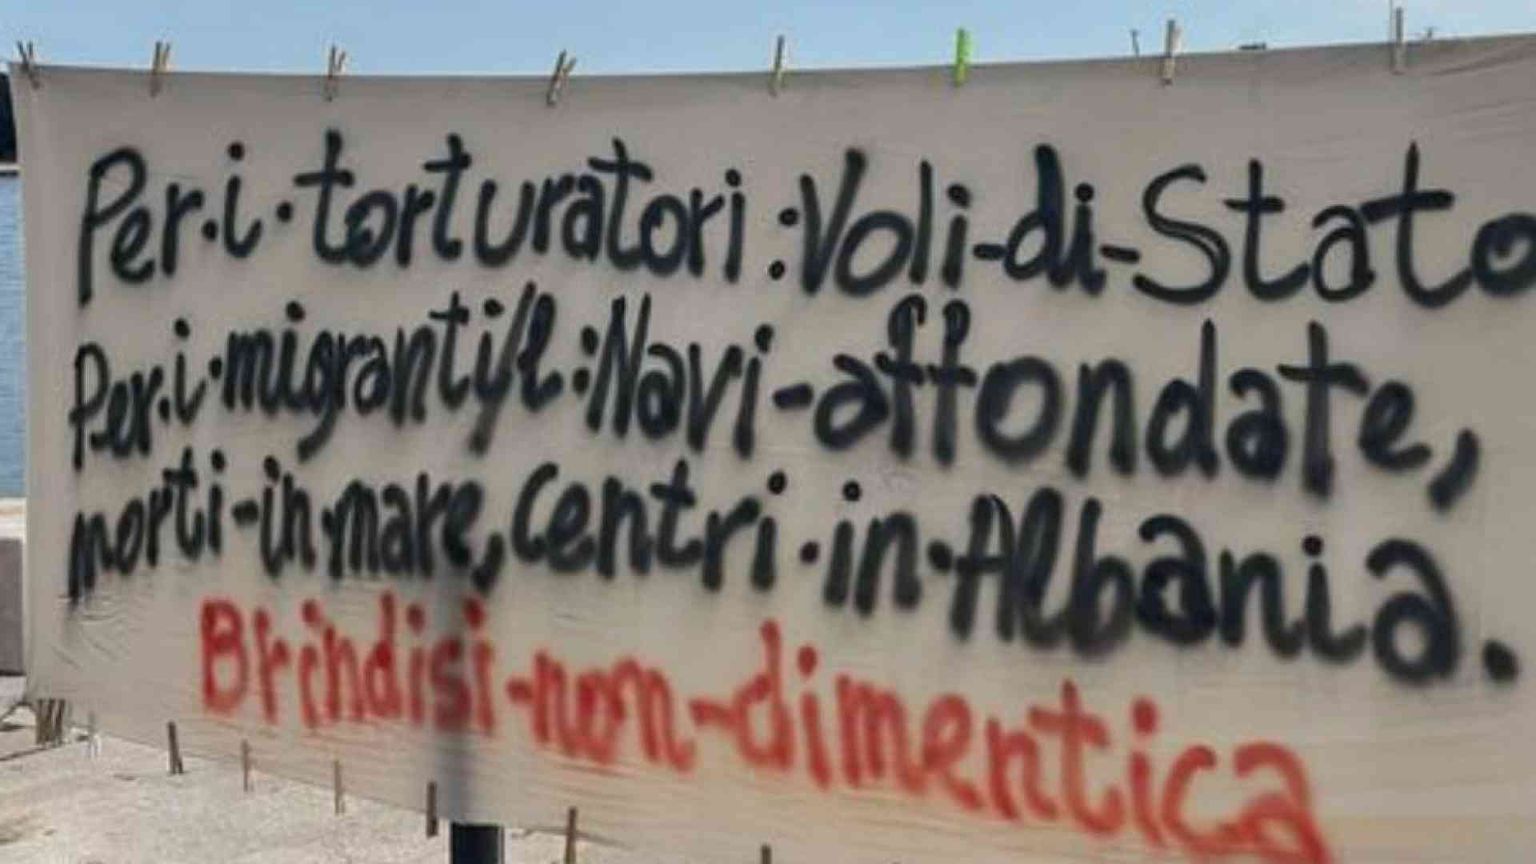 Per·i·torturatori:Voli-di-Stato
Per·i·migranti/e:Navi-affondate,
morti-in·mare,centri·in·Albania.
Brindisi-non-dimentica